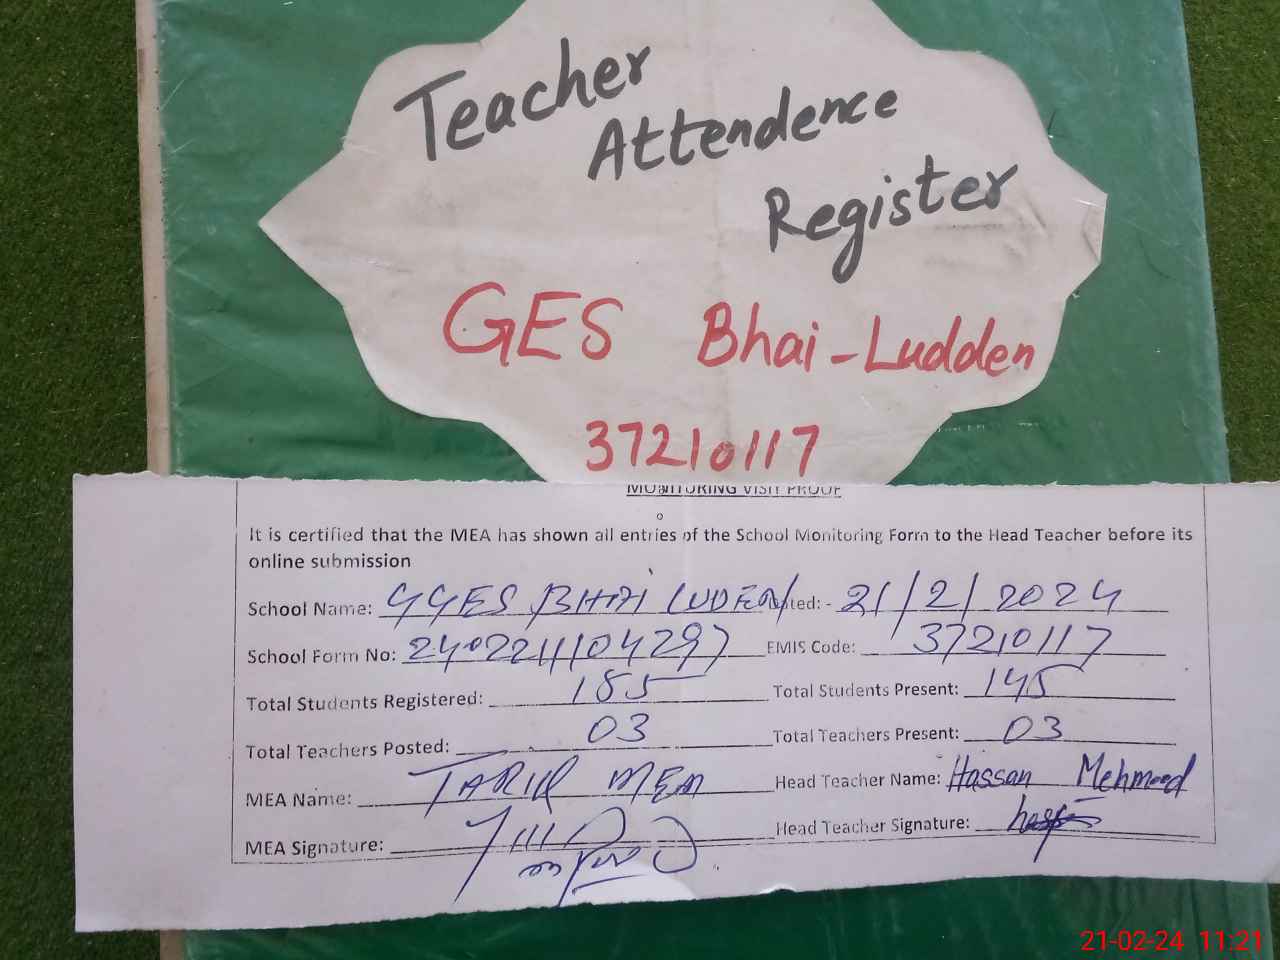 Teacher
Attendence
Register
GES Bhai-Ludden
37210117
MONITORING VISIT PROOF
It is certified that the MEA has shown all entries of the School Monitoring Form to the Head Teacher before its
online submission
School Name: GGES BHAI LUDEN Dated: - 21/2/2024
School Form No: 240221104297 EMIS Code: 37210117
Total Students Registered: 185 Total Students Present: 145
Total Teachers Posted: 03 Total Teachers Present: 03
MEA Name: TARIQ MEA Head Teacher Name: Hassan Mehmood
MEA Signature: Head Teacher Signature:
21-02-24 11:21